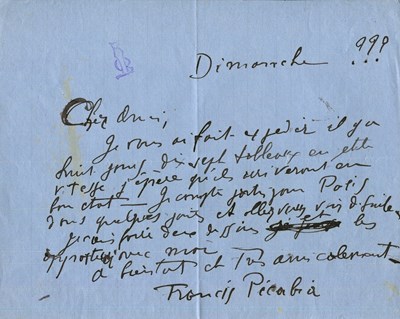 Dimanche ???
Cher ami,
Je vous ai fait expedier il y a
huit jours dix sept tableaux en
vitesse j'espère qu'ils arriveront en
bon état – Je compte partir pour Paris
dans quelques jours et
Je vais faire deux dessins les
avec moi
à bientot et très amicalement
Francis Picabia